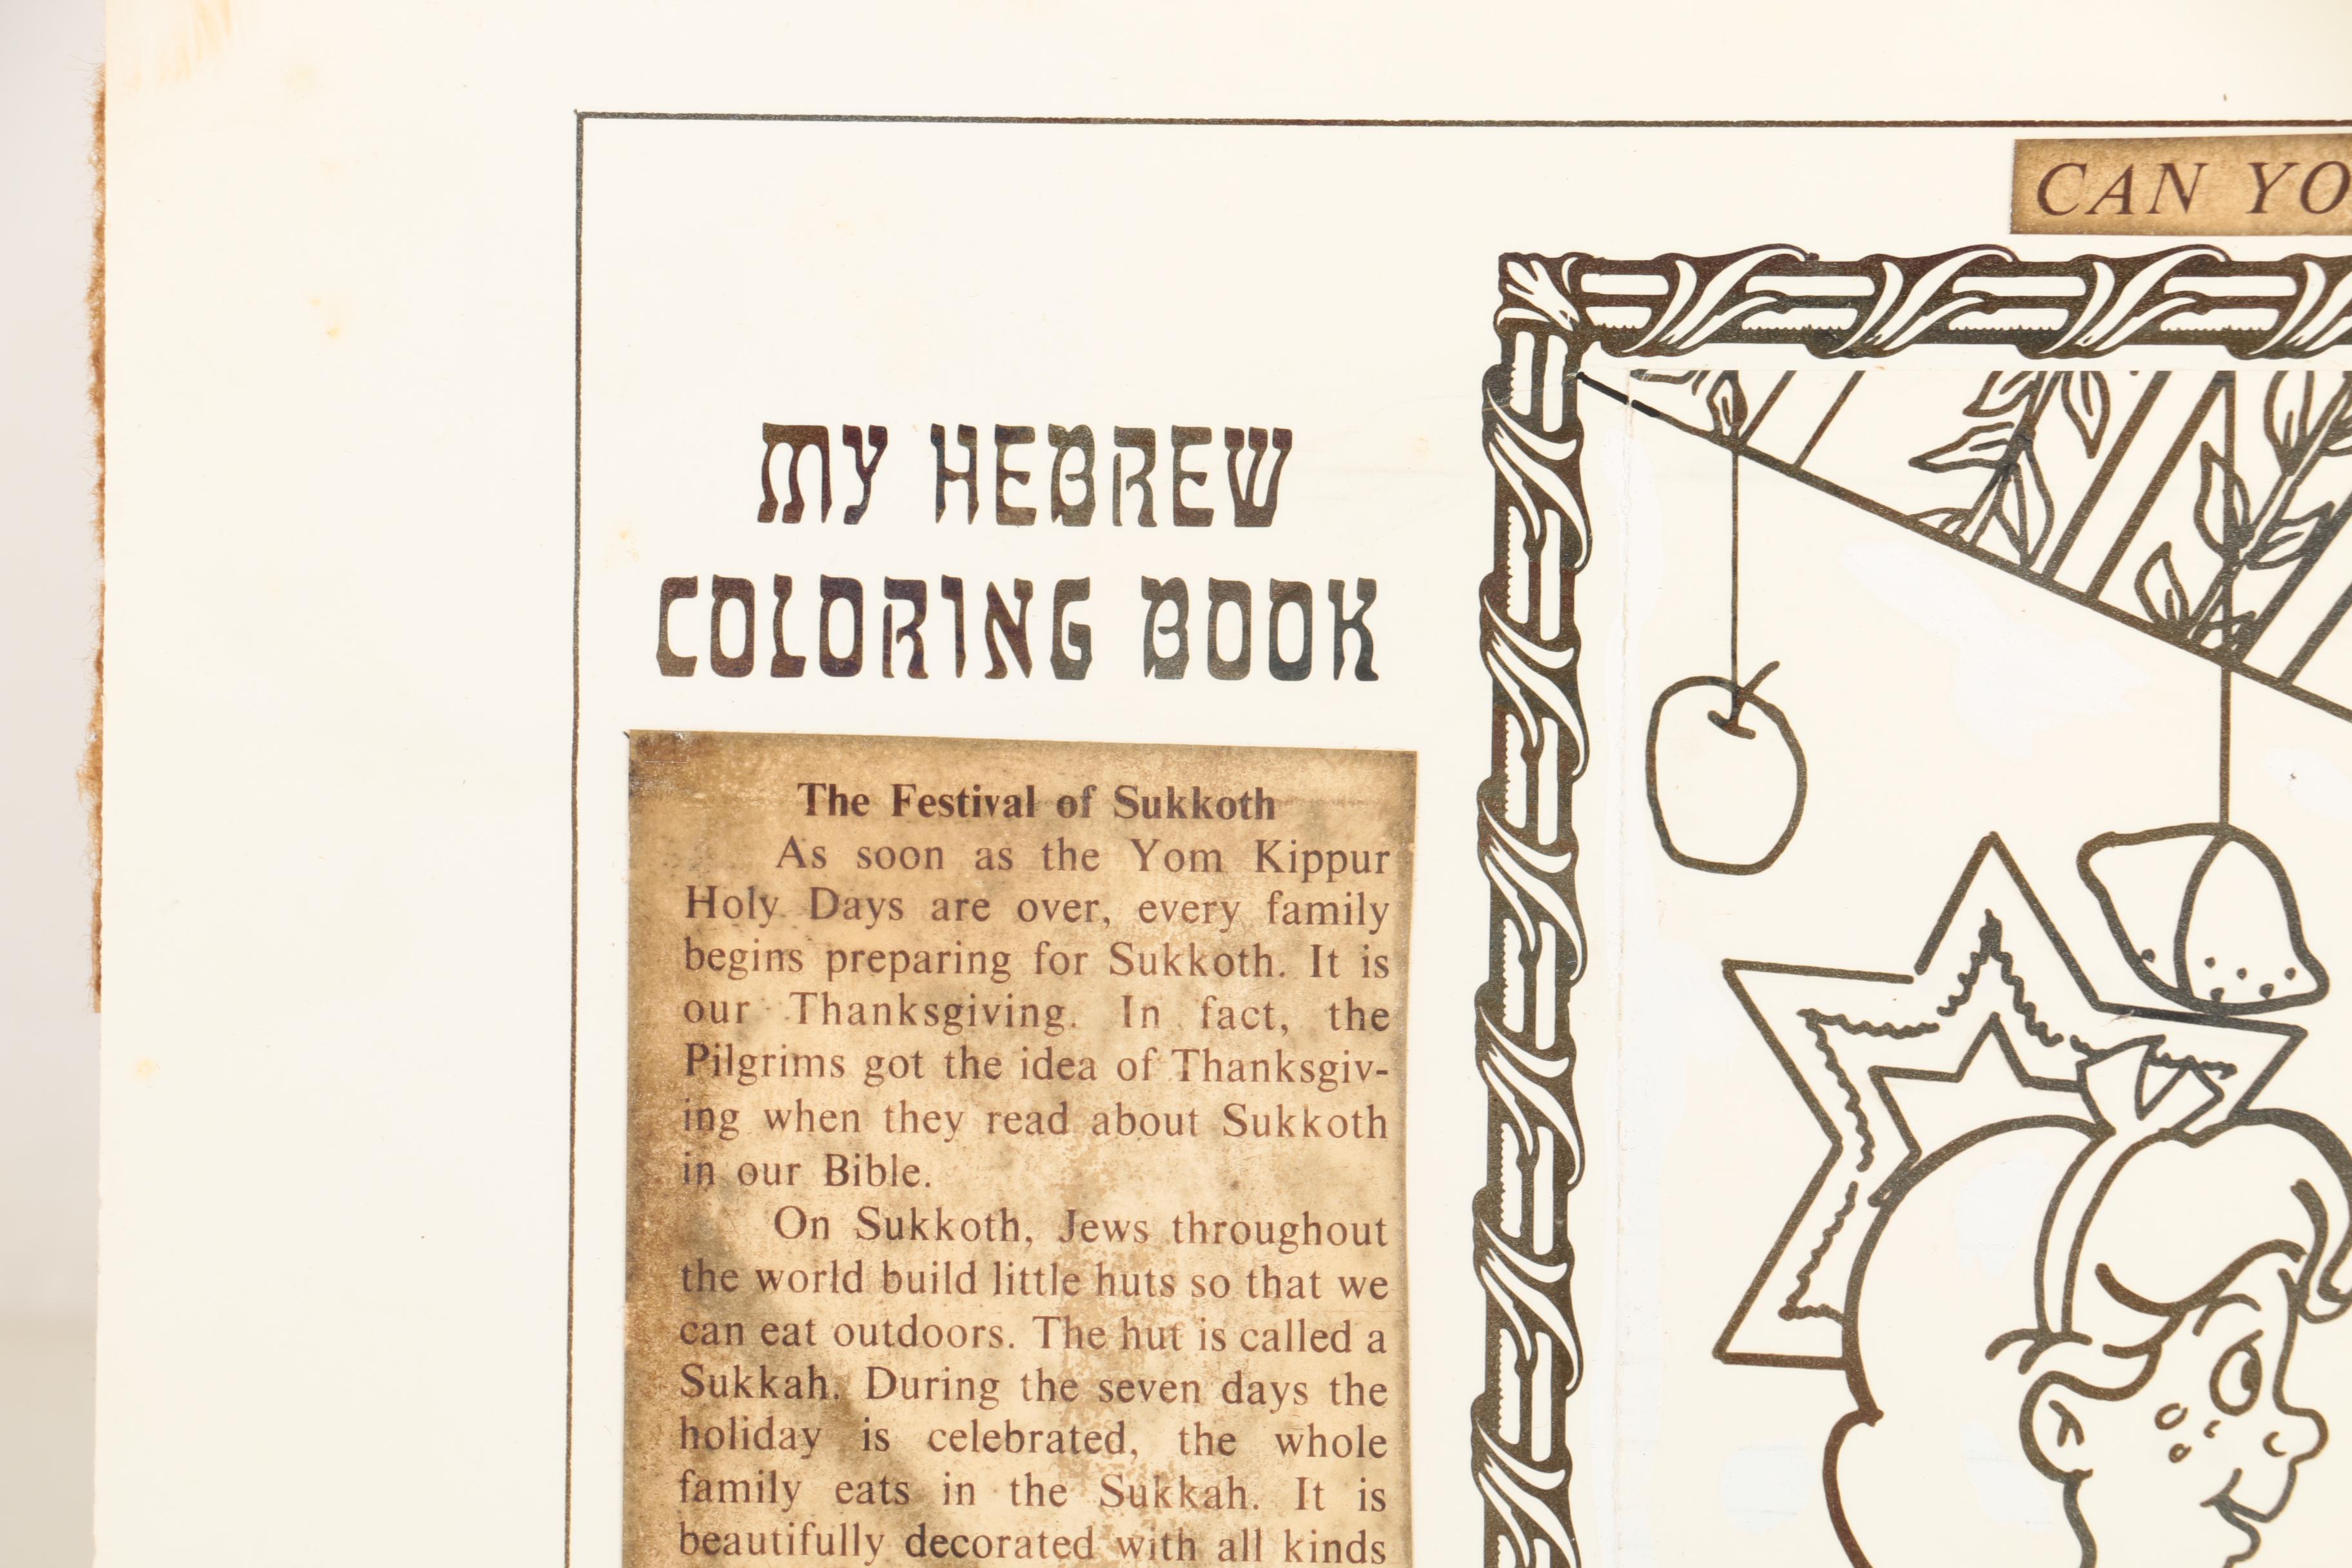 CAN YO
MY HEBREW
COLORING BOOK
The Festival of Sukkoth
As soon as the Yom Kippur
Holy Days are over, every family
begins preparing for Sukkoth. It is
our Thanksgiving. In fact, the
Pilgrims got the idea of Thanksgiv-
ing when they read about Sukkoth
in our Bible.
On Sukkoth, Jews throughout
the world build little huts so that we
can eat outdoors. The hut is called a
Sukkah. During the seven days the
holiday is celebrated, the whole
family eats in the Sukkah. It is
beautifully decorated with all kinds